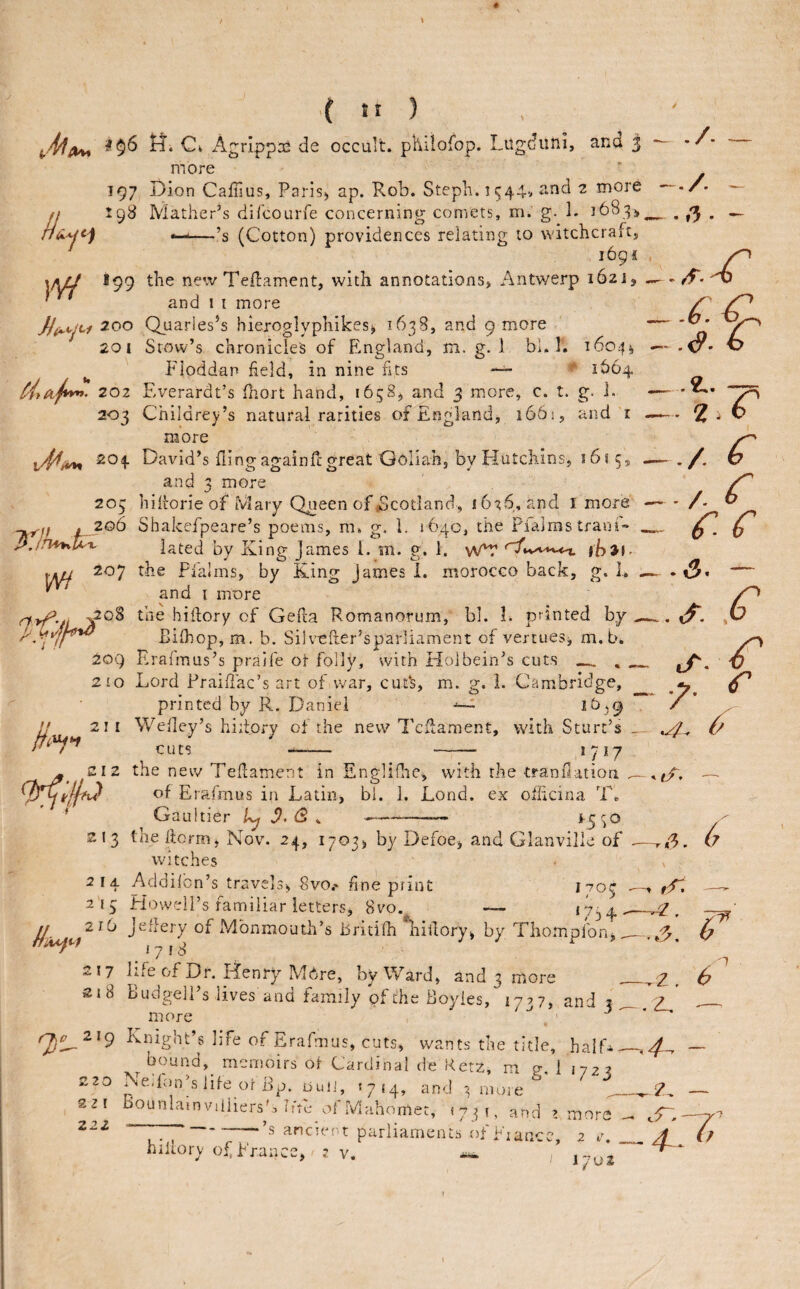 ( 11 )
Man 196 H. C. Agrippæ de occult. philosop. Lugduni, and 3 — - /- —
more
197 Dion Cassius, Paris, ap. Rob. Steph. 1544, and 2 more — . /. —
198 Mather's discourse concerning comets, m. g. l. 1683, — . 3 . —
Hayes ———'s (Cotton) providences relating to witchcraft,
1691
WH 199 the new Testament, with annotations, Antwerp 1621, — - 5. 6
and 11 more
Hayes 200 Quarles's hieroglyphikes, 1638, and 9 more — - 6. 6
201 Stow's chronicles of England, m. g. l bl. l. 1604, — . 8. 6
Floddan field, in nine fits — 1664
202 Everardt's short hand, 1658, and 3 more, c. t. g. l. — - 2. —
203 Childrey's natural rarities of England, 1661, and 1 — - 2. 6
more
Man 204 David's sling against great Goliah, by Hutchins, 1615, — . /. 6
and 3 more
205 historie of Mary Queen of Scotland, 1636, and 1 more — - /. 6
206 Shakespeare's poems, m. g. l. 1640, the Psalms trans- — 6. 6
lated by King James I. m. g. l. 1631.
WH 207 the Psalms, by King James I. morocco back, g. l. — . 3. —
and 1 more
208 the history of Gesta Romanorum, bl. l. printed by — . 5. 6
Bishop, m. b. Silvester's parliament of vertues, m. b.
209 Erasmus's praise of folly, with Holbein's cuts — . — 5. 6
210 Lord Praissac's art of war, cuts, m. g. l. Cambridge, — . 7. 6
printed by R. Daniel — 1639
Hayes 211 Wesley's history of the new Testament, with Sturt's — . 4. 6
cuts —— —— 1717
212 the new Testament in Englishe, with the translation — . 5. —
of Erasmus in Latin, bl. l. Lond. ex officina T.
Gaultier by J. C. ——— 1550
213 the storm, Nov. 24, 1703, by Defoe, and Glanville of — . 3. 6
witches
214 Addison's travels, 8vo. fine print 1705 — . 5. —
215 Howell's familiar letters, 8vo. — 1754 — . 2. —
Hayes 216 Jeffery of Monmouth's British history, by Thompson, — . 3. 6
1718
217 life of Dr. Henry More, by Ward, and 3 more — . 2. 6
218 Budgell's lives and family of the Boyles, 1737, and 3 — . 2. —
more
219 Knight's life of Erasmus, cuts, wants the title, half- — . 4. —
bound, memoirs of Cardinal de Retz, m g. l 1723
220 Nelson's life of Bp. Bull, 1714, and 3 more — . 2. —
221 Bounlainvilliers's life of Mahomet, 1731, and 2 more — . 5. —
222 ———'s ancient parliaments of France, 2 v. — 4. 6
history of France, 2 v. — 1702